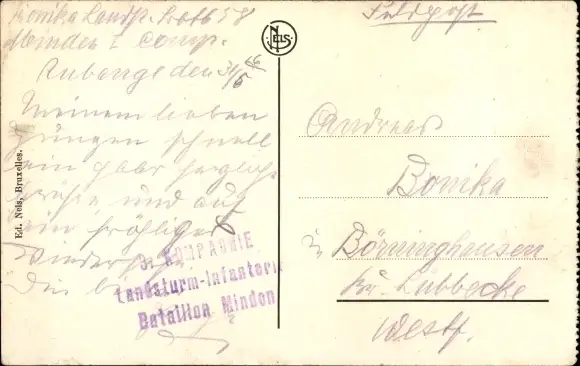 Bonika Landst. Batl 58
Minden I Comp.
Aubange den 31/5 16
Meinem lieben
Jungen schnell
ein paar herzliche
Grüße und auf
ein fröhliges
Wiedersehn
Ed. Nels, Bruxelles.
NELS
3. KOMPAGNIE
Landsturm-Infanterie
Bataillon Minden
Feldpost
Andreas
Bonika
in Börninghausen
Kr. Lübbecke
Westf.